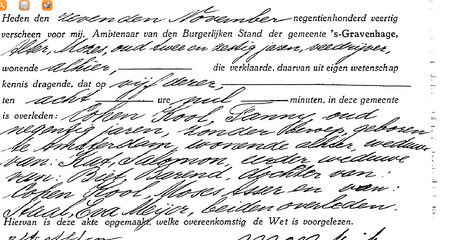 Heden den zevenden November negentienhonderd veertig
verscheen voor mij, Ambtenaar van den Burgerlijken Stand der gemeente 's-Gravenhage,
Alter, Mozes, oud twee en zestig jaren, veedrijver,
wonende alhier, die verklaarde, daarvan uit eigen wetenschap
kennis dragende, dat op vijf dezer,
ten acht ure nul minuten, in deze gemeente
is overleden: Cohen Kool, Fanny, oud
negentig jaren, zonder beroep, geboren
te Amsterdam, wonende alhier, weduwe
van: Salomon, eerder weduwe
van: Beit, Barend, dochter van:
Cohen Kool, Moses Asser en van:
Staal, Eva Meijer, beiden overleden.
Hiervan is deze akte opgemaakt, welke overeenkomstig de Wet is voorgelezen.